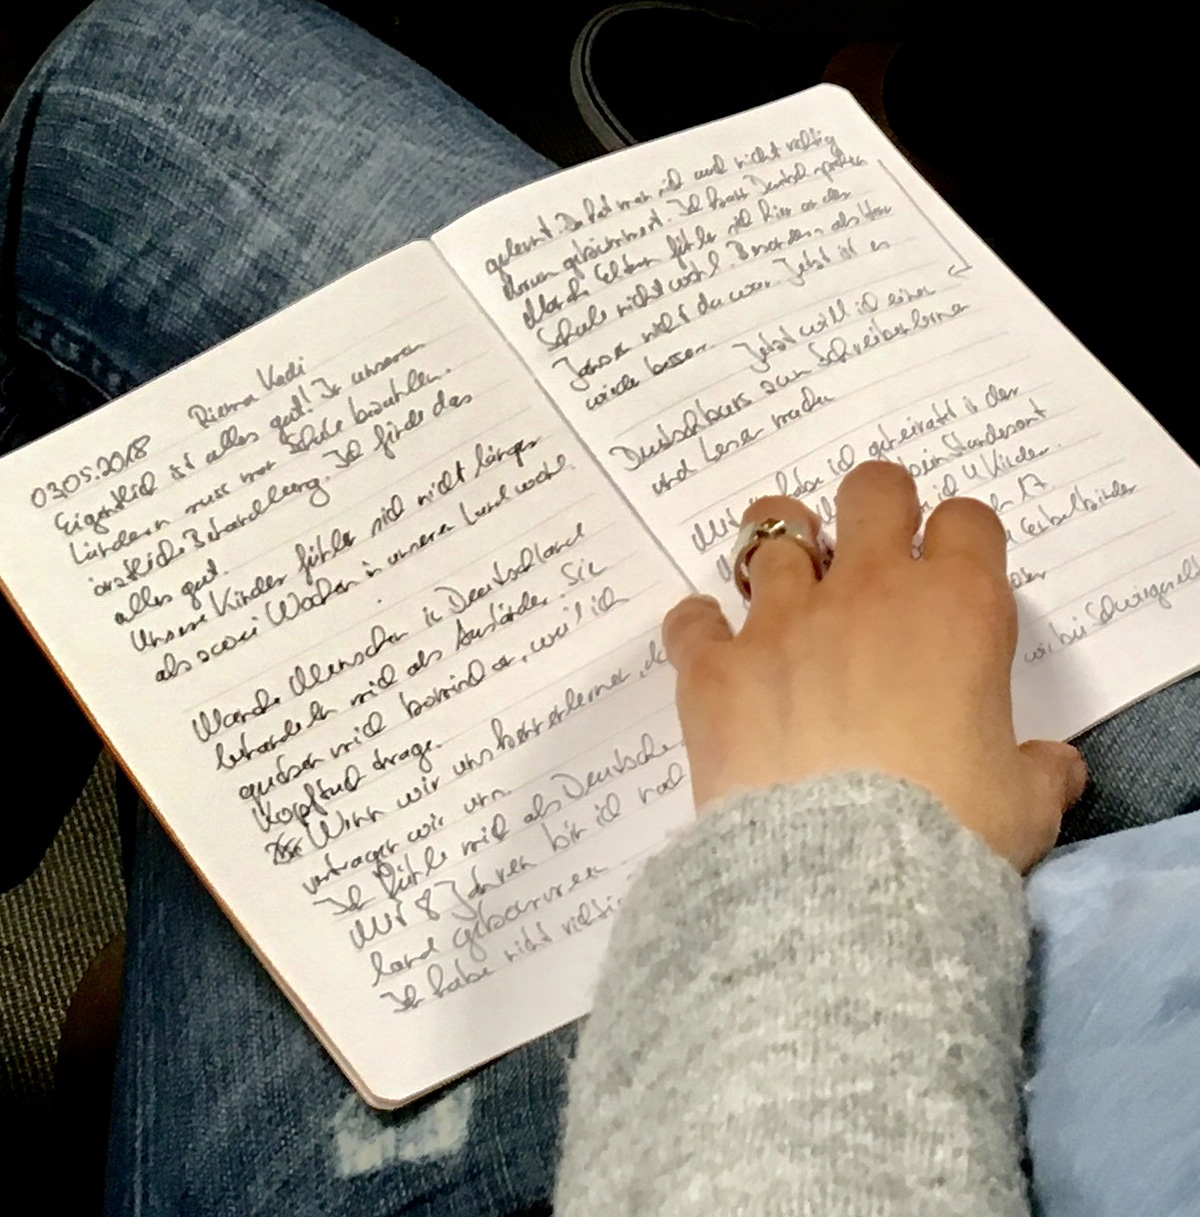 03.05.2018 Riema Kadi
Eigentlich ist alles gut! In unseren
Ländern muss man Schule bezahlen.
ärztliche Behandlung. Ich finde das
alles gut.
Unsere Kinder fühlen sich nicht länger
als zwei Wochen in unseren Land wohl.
Manche Menschen in Deutschland
behandeln mich als Ausländer. Sie
gucken mich komisch an, weil ich
Kopftuch trage.
Wenn wir uns kennenlernen, da
vertragen wir uns.
Ich fühle mich als Deutsche.
Mit 8 Jahren bin ich nach
land gekommen
Ich habe nicht richtig
gelernt. Da hat man sich auch nicht richtig
darum gekümmert. Ich kann Deutsch sprechen
Manche Eltern fühlen sich hier an der
Schule nicht wohl. Besonders als Herr
Jansen nicht da war. Jetzt ist es
wieder besser. Jetzt will ich einen
Deutschkurs zum Schreiben lernen
und Lesen machen
Mit habe ich geheiratet in der
beim Standesamt
ich 4 Kinder.
17.
wir bei Schwiegerelt